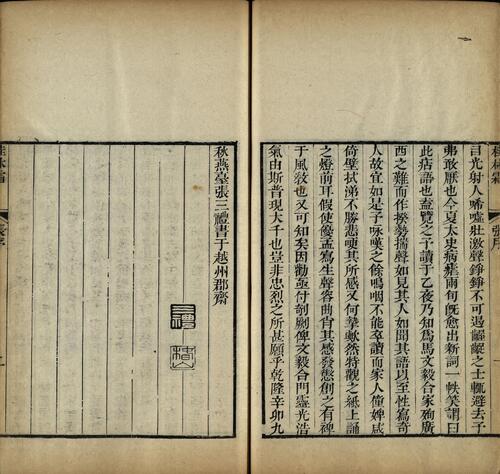 言光射人唏噓壯激聲錚錚不可遏齷齪之士輒避去予
弗敢厭也今夏太史病瘧兩旬旣愈出新詞一帙笑謂曰
此痞語也盍覽之予讀于乙夜乃知爲馬文毅合家殉廣
西之難而作揆勢揣聲如見其人如聞其語以至性寫奇
人故宜如是予咏嘆之餘嗚咽不能卒讀而家人僮婢咸
倚壁拭涕不勝悲哽其所感又何摯歟然特觀之紙上誦
之燈前耳假使優孟寫生聲容曲肖其感發懲創之有裨
于風教也又可知矣因勸亟付剞劂俾文毅合門靈光浩
氣由斯普現大千也豈非忠烈之所甚願乎乾隆辛卯九
秋燕臺張三禮書于越州郡齋
桂林霜
張序
三禮